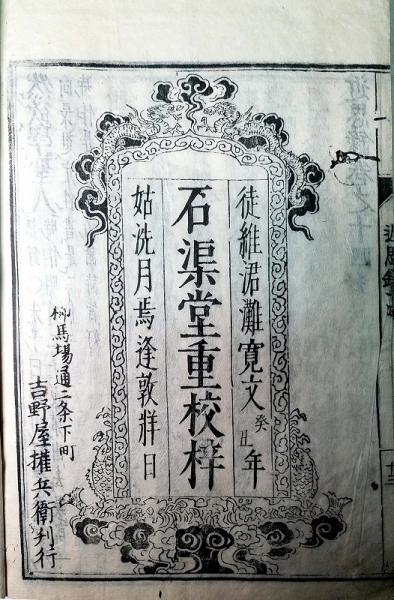 徒維涒灘寛文癸丑年
石渠堂重校梓
姑洗月焉逢敦牂日
柳馬場通二条下町
吉野屋權兵衛刊行